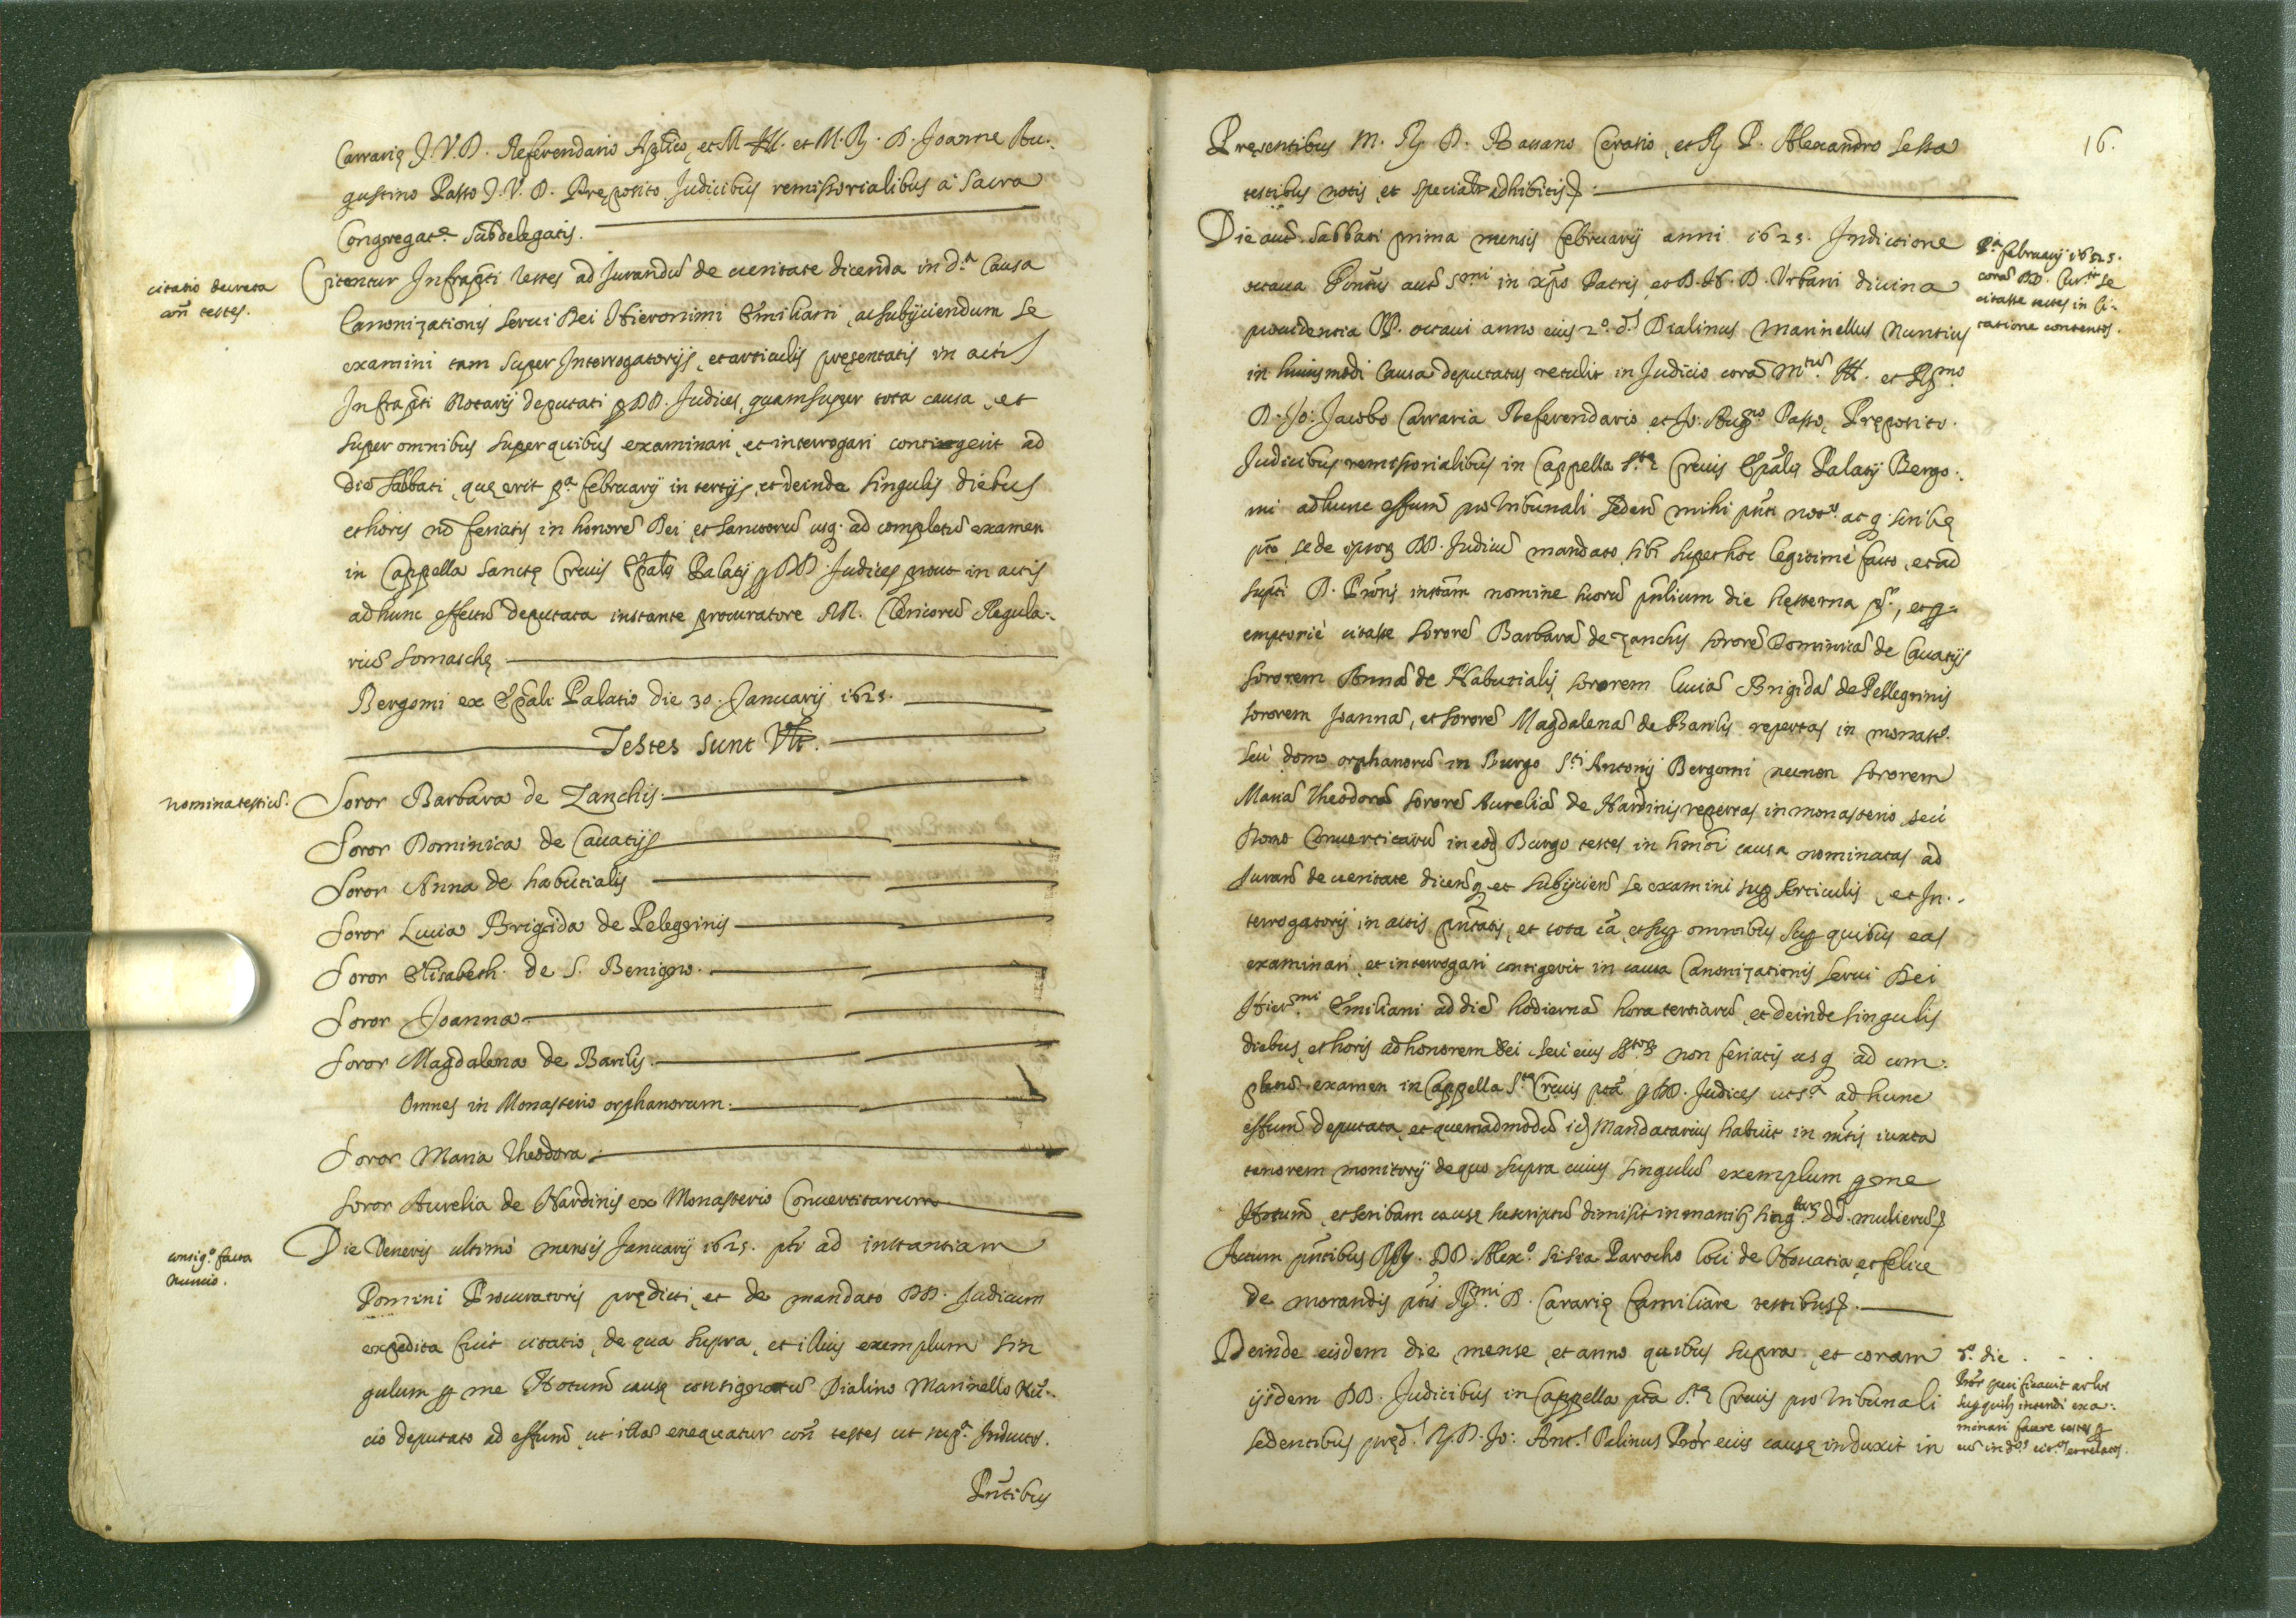 Carrarię J.V.D. Referendario Aplico, et M. Ill. et M. R. D. Joanne Au-
gustino Passo J.V.D. Pręposito Judicibus remissorialibus à Sacra
Congregat.e Subdelegatis.
citatio decreta
con̄ testes.
Citentur Infrapti testes ad Jurandū de veritate dicenda in d.a Causa
Canonizationis Servi Dei Hieronimi Emiliani, ac subijciendum se
examini tam super Interrogatorijs, et articulis pręsentatis in actis
Infrapti Notarij deputati p DD. Judices, quam super tota causa, et
super omnibus super quibus examinari, et interrogari contingerit ad
diē Sabbati, quę erit p.a februarij in tertijs, et deinde singulis diebus
et horis nō feriatis in honorē Dei, et Sanctorū usq. ad completū examen
in Cappella Sanctę Crucis Epalis Palatij p DD. Judices prout in actis
ad hunc effectū deputata instante procuratore RR. Clericorū Regula-
riū Somaschę
Bergomi ex Epali Palatio die 30. Januarij 1625.
Testes sunt Vlt.
nomina testiū.
Soror Barbara de Zanchis.
Soror Dominica de Cavatijs
Soror Anna de habutialis
Soror Lucia Brigida de Pelegrinis
Soror Elisabeth. de S. Benigno.
Soror Joanna.
Soror Magdalena de Barilis.
Omnes in Monasterio orphanorum.
Soror Maria Theodora.
Soror Aurelia de Nardinis ex Monasterio Convertitarum
consig.o facta
nuncio.
Die Veneris ultimo mensis Januarij 1625. pti ad instantiam
Domini Procuratoris prędicti, et de mandato DD. Judicum
expedita fuit citatio, de qua supra, et illius exemplum sin
gulum p me Notum causę consignatū Dialino Marinello Nū-
cio deputato ad effum, ut illas exequatur con̄ testes ut sup.a Inductos.
Pntibus
16.
Pręsentibus M. R. D. Bassano Ceratio, et R. P. Alexandro Sessa
testibus notis, et specialr adhibitis
Die aut. Sabbati prima mensis februarij anni 1625. Indictione
octava Pontus aut S.mi in xpo Patris, et D. N. D. Urbani divina
providentia PP. octavi anno eius 2.o d.s Dialinus Marinellus Nuntius
in huiusmodi Causa deputatus retulit in Judicio corā M.tū Ill. et R.mo
D. Jo: Jacobo Carraria Referendario, et Jo: Aug.no Passo, Pręposito.
Judicibus remissorialibus in Cappella S.tę Crucis Epalis Palatij Bergo-
mi ad hunc effum pro tribunali Seden mihi pnti not.o ac q. scribę
pto se de DD. Judicū mandato sibi super hoc legitimè facto, et ad
supti D. Proris instam nomine suorū pnlium die hesterna, et p-
emptoriè citasse Sororē Barbarā de Zanchis sororē Dominicā de Cavatijs
Sororem Annā de Habutialis, Sororem Luciā Brigidā de Pellegrinis
Sororem Joannā, et Sororē Magdalenā de Barilis repertas in monast.o
seu domo orphanorū in Burgo S.ti Antonij Bergomi necnon Sororem
Mariā Theodorā Sororē Aureliā de Nardinis repertas in monasterio, seu
Domo Convertitarū in eod Burgo testes in hmoi causa nominatas ad
Juran de veritate dicen, et subijcien se examini sup Articulis, et In-
terrogatorijs in actis pntatis, et tota ca, et sup omnibus sup quibus eas
examinari, et interrogari contigerit in causa Canonizationis Servi Dei
Hier.mi Emiliani ad diē hodiernā hora tertiarū, et deinde singulis
diebus, et horis ad honorem Dei, seu eius non feriatis usq ad com-
pletū examen in Cappella S.tę Crucis pta p DD. Judices ut s.a ad hunc
effum deputata, et quemadmodū id Mandatarius habuit in mtis iuxta
tenorem monitorij de quo supra cuius singulū exemplum p me
Notum, et scribam causę suscriptū dimisit in manib sing.larū dd. mulierū
Actum pntibus RR. DD. Alex.o Sista Parocho loci de Novatia, et felice
de morandis ptis R.mi D. Cararię familiare testibus
Deinde eisdem die, mense, et anno quibus supra, et coram
ijsdem DD. Judicibus in Cappella pta S.tę Crucis pro tribunali
sedentibus pręd. R. D. Jo: Ant.s Palinus Pror eius causę induxit in
P.a februarij 1625.
corā DD. se
citasse testes in ci-
tatione contentos.
d.o die . . .
Pror
sup quib intendi exa-
minari facere testes p